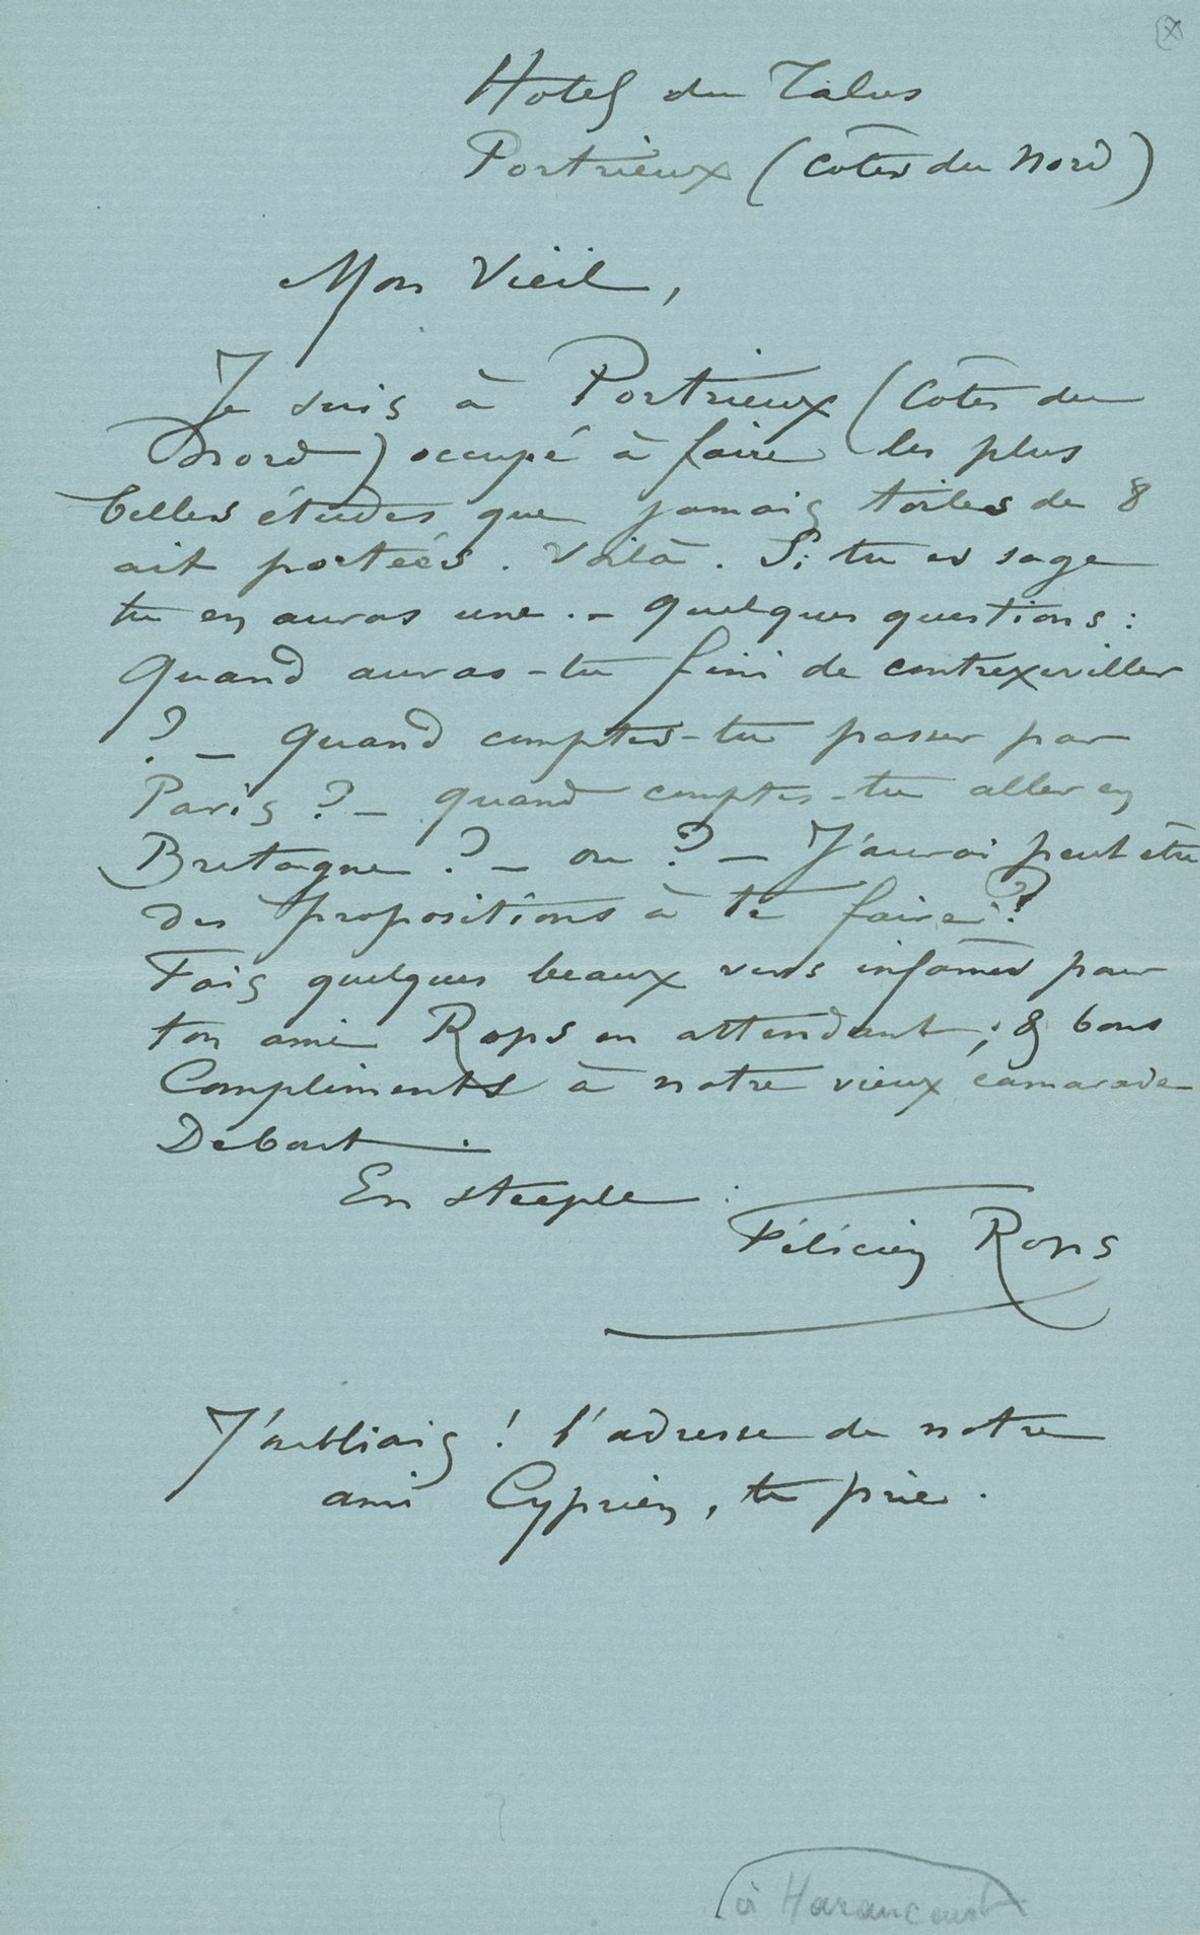 Hotel du Talus
Portrieux (Côtes du Nord)
Mon Vieil,
Je suis à Portrieux (Côtes du
Nord) occupé à faire les plus
belles études que jamais toiles de 8
ait portées. Voilà. Si tu es sage
tu en auras une. – Quelques questions :
Quand auras-tu fini de contrexeviller
? – Quand comptes-tu passer par
Paris ? – quand comptes-tu aller en
Bretagne ? – ou ? – J'aurai peut être
des propositions à te faire ?
Fais quelques beaux vers infâmes pour
ton ami Rops en attendant ; & bons
Compliments à notre vieux camarade
Debout .
En steeple
Félicien Rops
J'oubliais ! l'adresse de notre
ami Cyprien, te prie .
à Haraucourt